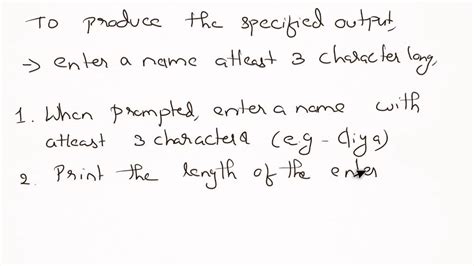 To produce the specified output,
→ enter a name atleast 3 character long,
1. When prompted, enter a name with
atleast 3 characters (eg - diya)
2. Print the length of the enter